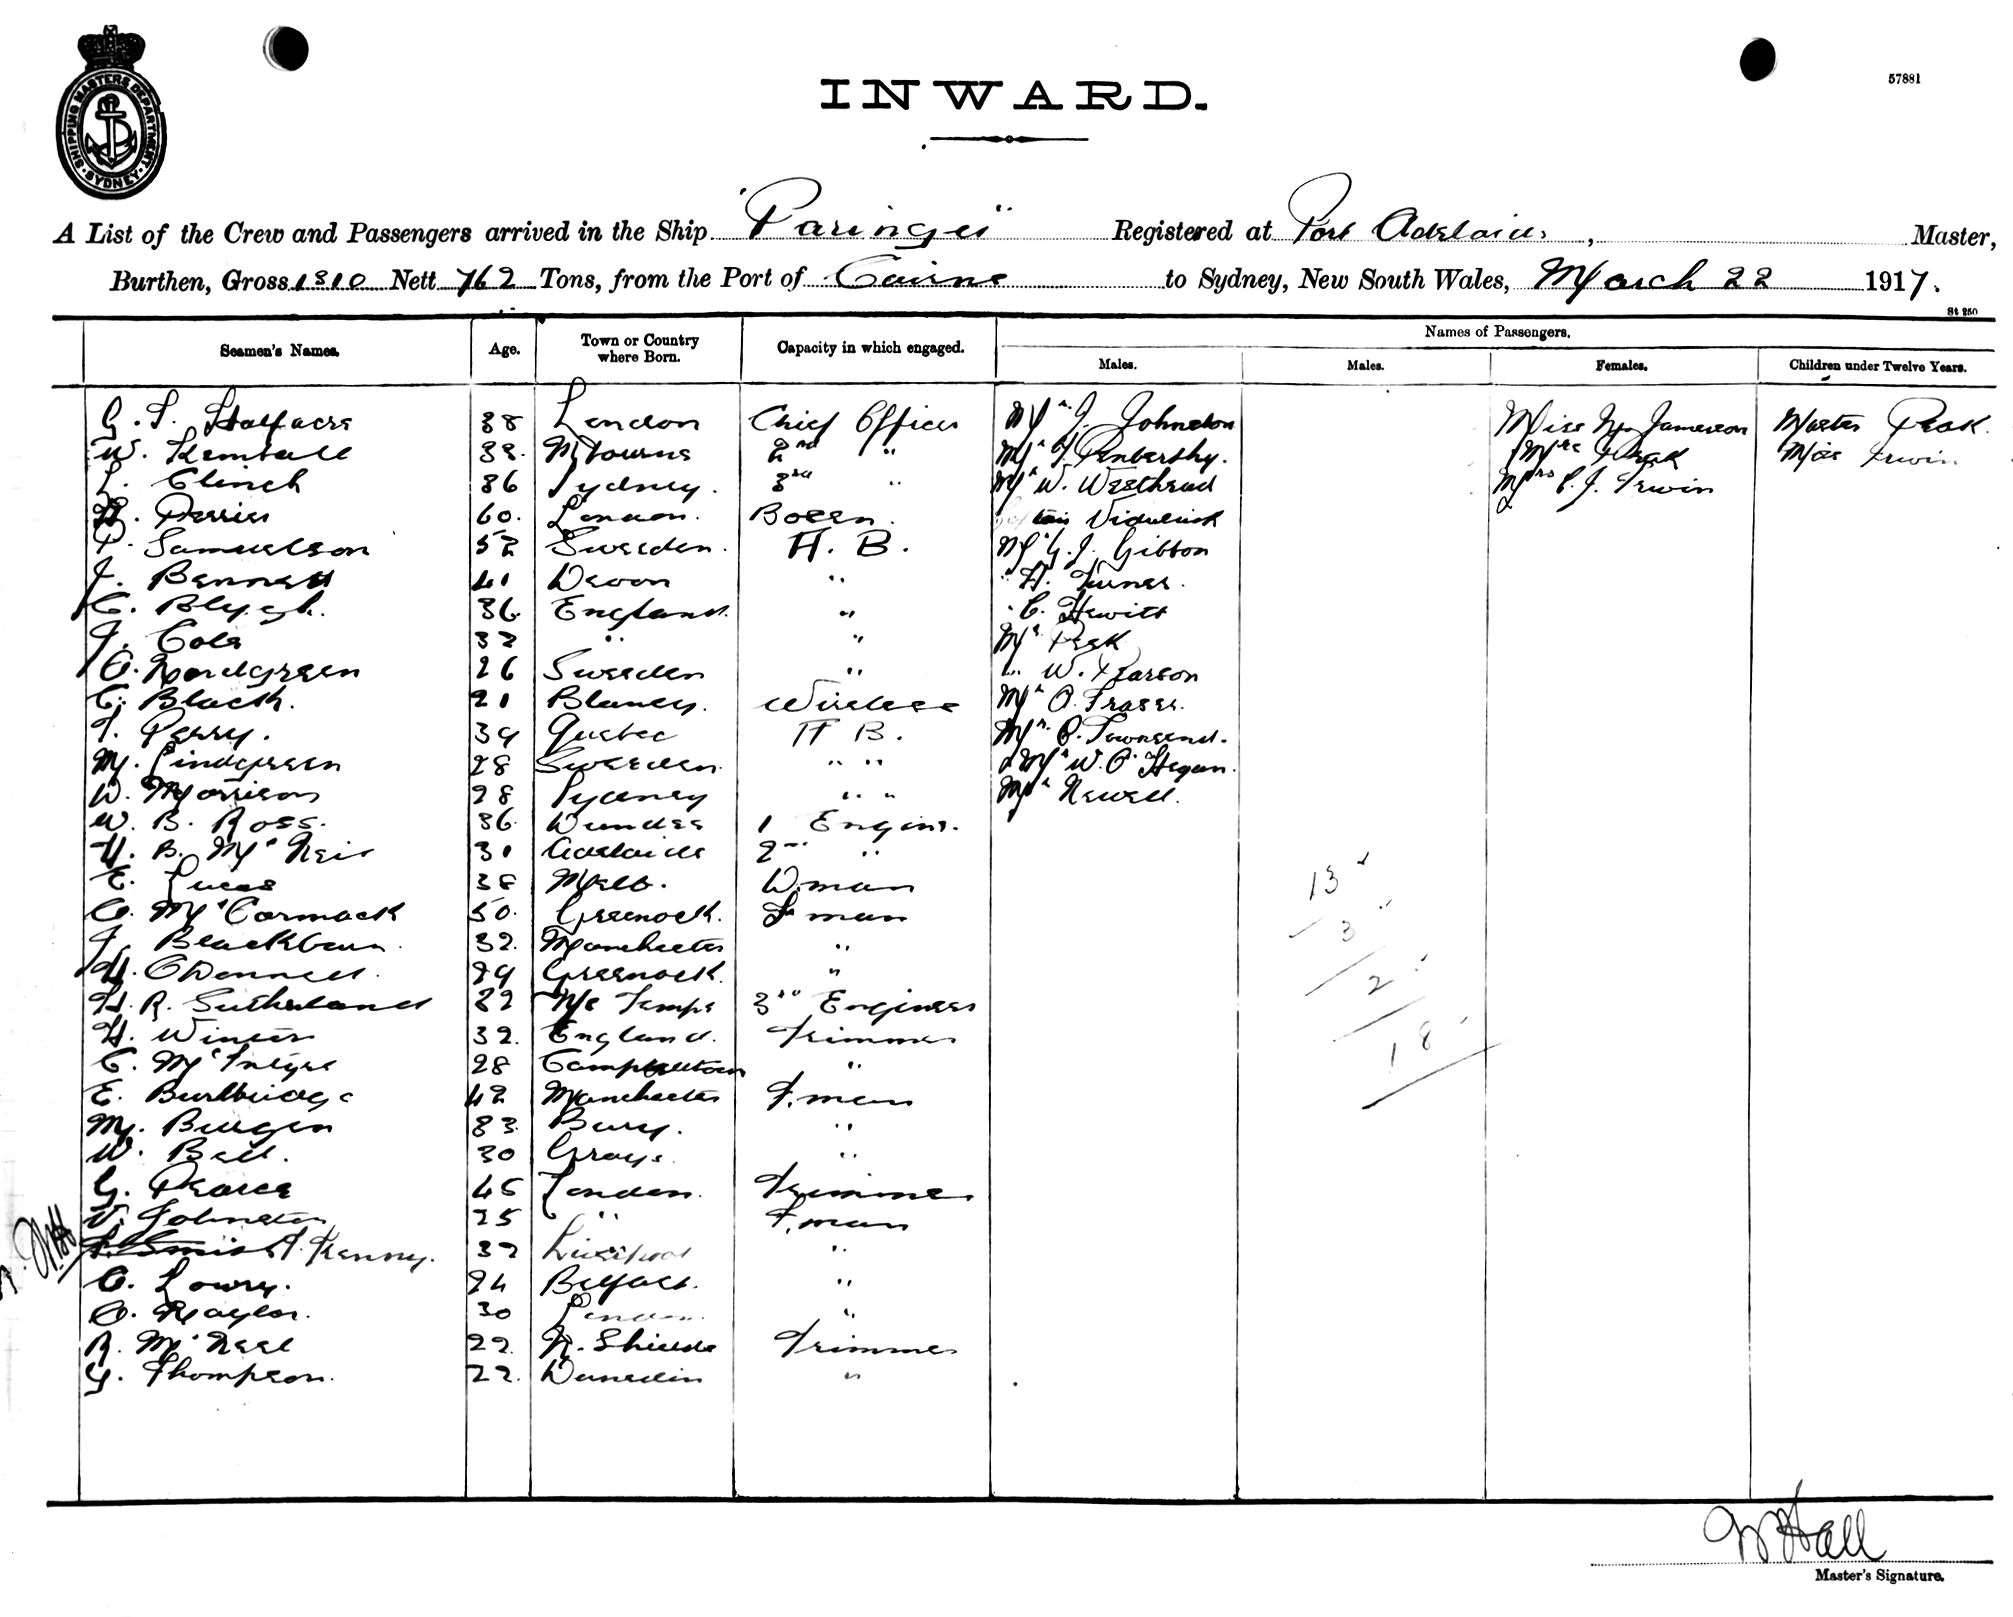 SHIPPING MASTERS DEPARTMENT
SYDNEY
57881
INWARD.
A List of the Crew and Passengers arrived in the Ship "Paringa" Registered at Port Adelaide, Master,
Burthen, Gross 1310 Nett 762 Tons, from the Port of Cairns to Sydney, New South Wales, March 22 1917.
St 250
Seamen's Names. Age. Town or Country where Born. Capacity in which engaged. Names of Passengers.
Males. Males. Females. Children under Twelve Years.
G. F. Halfacre 38 London Chief Officer Mr. J. Johnston Miss M. Jameson Master Peak.
W. Kemball 33. 2nd " Mr J. Penberthy. Mrs Peak Miss Irwin
L. Clinch 36 Sydney. 3rd " Mr W. Westhead Mrs P. J. Irwin
Perrier 60. London. Bosen.
P. Samuelson 52 Sweden. A. B. Mr G. J. Gibton
J. Bennett 41 Devon " " H. Turner.
C. Blygh. 36. England. " " C. Hewitt
J. Cole 32 " " Mr Peak
O. Nordgreen 26 Sweden " " W. Pearson
C. Black. 21 Blaney. Wireless Mr O. Fraser.
T. Perry. 39 Quebec A B. Mr. P. Townsend.
M. Lindgreen 28 Sweden. " " Mr W. O'Hegan.
W. Morrison 28 Sydney " " Mr Newell.
W. B. Ross. 36. Dundee 1 Engine.
H. B. McNeis 31 Adelaide 2nd "
E. Lucas 38 Melb. D. man
O. McCormack 50. Greenock. F man
J. Blackburn. 32. Manchester "
H. O'Donnell. 29 Greenock. "
H. R. Sutherland 32 3rd Engineer
H. Winter 32. England. Trimmer
C. McIntyre 28 Campbelltown "
E. Burlbridge 42 Manchester F. man
M. Burgen 33. Bury. "
W. Bell. 30 Grays. "
G. Pearce 45 London. Trimmer
V. Johnston 25 " F. man
A. Kenny. 32 Liverpool "
O. Lowry. 24 Belfast. "
O. Naylor. 30 London. "
R. McNeel 22. N. Shields Trimmer
G. Thompson. 22. Dunedin "
13
3
2
18
W Hall
Master's Signature.